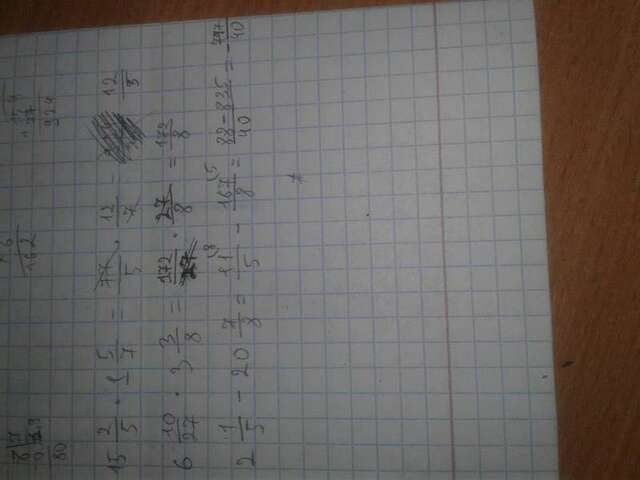 162
924
80
15 2/5 · 1 5/7 = 77/5 · 12/7 = 12/5
6 10/27 · 3 3/8 = 172/27 · 27/8 = 172/8
2 1/5 - 20 7/8 = 11/5 (8 - 167/8 (5 = 88-835/40 = -747/40